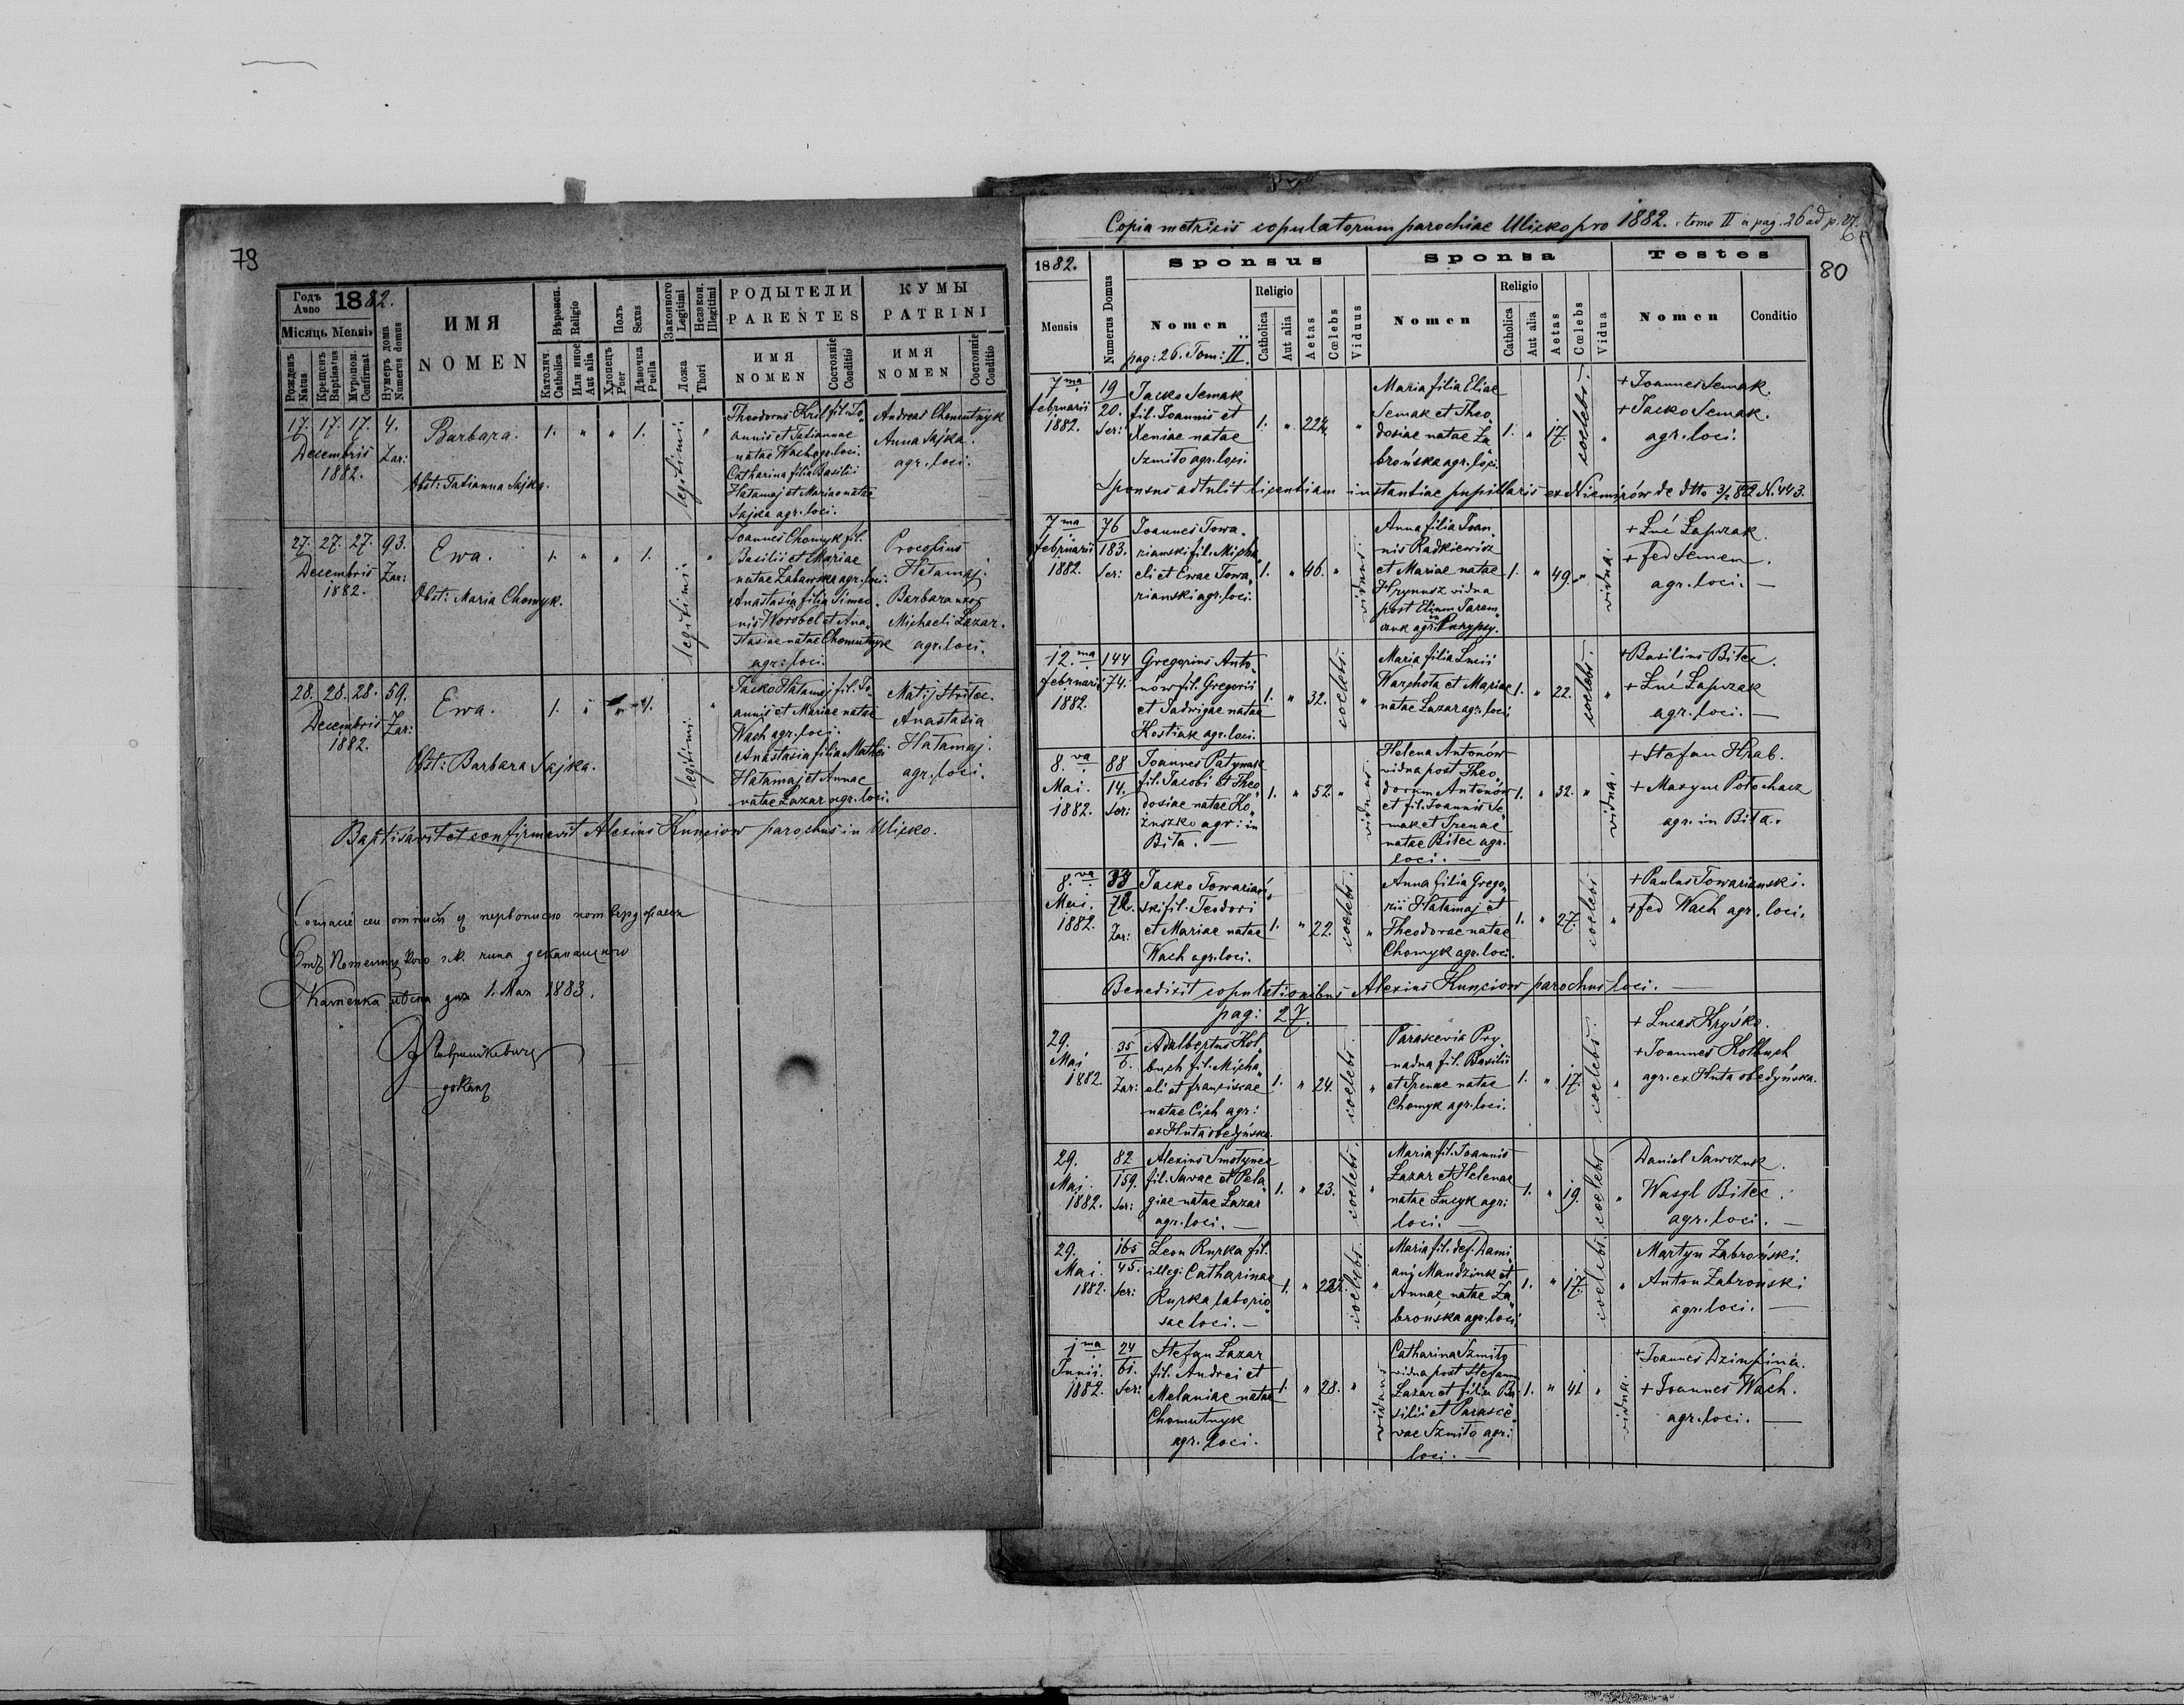 79
Годъ Anno 1882.
Місяць Mensis
Рожденъ Natus
Крещенъ Baptisatus
Мѵропом. Confirmat
Нумеръ дома Numerus domus
ИМЯ
NOMEN
Вѣроисп. Religio
Католич. Catholica
Или иное Aut alia
Полъ Sexus
Хлопецъ Puer
Дѣвочка Puella
Законного Legitimi
Незакон. Illegitimi
Ложа Thori
РОДЫТЕЛИ
PARENTES
ИМЯ
NOMEN
Состояніе Conditio
КУМЫ
PATRINI
ИМЯ
NOMEN
Состояніе Conditio
17. 17. 17. 4.
Decembris Zar:
1882.
Barbara.
Obst: Tatianna Sajka.
1. " " 1.
legitimi.
Theodorus Kril fil. Jo„
annis et Tatiannae
natae Wach agr. loci.
Catharina filia Basilii
Hatamaj et Mariae natae
Sajka agr. loci.
Andreas Chomutnyk
Anna Sajka.
agr. loci.
27. 27. 27. 93.
Decembris Zar:
1882.
Ewa.
Obst: Maria Chomyk.
1. " " 1.
legitimi
Joannes Chomyk fil.
Basilii et Mariae
natae Zabawska agr. loci.
Anastasia filia Simeo„
nis Worobel et Ana„
stasiae natae Chomutnyk
agr: loci.
Procopius
Hatamaj.
Barbara uxor
Michaeli Lazar.
agr. loci.
28. 28. 28. 59.
Decembris Zar:
1882.
Ewa.
Obst: Barbara Sajka.
1. " " 1.
legitimi.
Jacko Hatamaj fil. Jo„
annis et Mariae natae
Wach agr. loci.
Anastasia filia Mathei
Hatamaj et Annae
natae Lazar agr. loci.
Matij Hritec.
Anastasia
Hatamaj.
agr. loci.
Baptisavit et confirmavit Alexius Kunciow parochus in Ulicko.
1. Мая 1883.
Copia metricis copulatorum parochiae Ulicko pro 1882. tomo II a pag. 26 ad p. 27.
80
1882.
Mensis
Numerus Domus
Sponsus
Nomen
pag: 26. Tom: II.
Religio
Catholica
Aut alia
Aetas
Cœlebs
Viduus
Sponsa
Nomen
Religio
Catholica
Aut alia
Aetas
Cœlebs
Vidua
Testes
Nomen
Conditio
7ma
februarii
1882.
19
20.
Ser:
Jacko Semak
fil. Joannis et
Xeniae natae
Szmito agr. loci
1. "
Maria filia Eliae
Semak et Theo„
dosiae natae Za„
brońska agr. loci.
1. " 17. coelebs. "
+ Joannes Semak.
+ Jacko Semak.
agr. loci.
Sponsus adtulit licentiam instantiae pupillaris ex Niemirów de dtto 3/2 882 N. 443.
7ma
februarii
1882.
76
183.
Ser:
Joannes Towa„
rianski fil. Micha„
eli et Ewae Towa„
rianski agr. loci.
1. " 46. " viduus.
Anna filia Joan„
nis Radkiewicz
et Mariae natae
Hrynusz vidua
post Eliam Parem„
czuk agr. in Parypsy.
1. " 49. " vidua.
+ Luć Łapczak.
+ fed Semen.
agr. loci. —
12.ma
februarii
1882.
144
74.
Gregorius Anto„
nów fil. Gregorii
et Jadwigae natae
Kostiak agr. loci.
1. " 32. coelebs.
Maria filia Lucii
Warchota et Mariae
natae Lazar agr. loci
1. " 22. coelebs. "
+ Basilius Bitec.
+ Luć Łapczak
agr. loci. —
8.va
Mai.
1882.
88
14.
Ser:
Joannes Patynak
fil. Jacobi et Theo„
dosiae natae Ko„
żuszko agr: in
Bita. —
1. " 52. " viduus.
Helena Antonów
vidua post Theo„
dorum Antonów
et fil. Joannis Se„
mak et Irenae
natae Bitec agr.
loci. —
1. " 32. " vidua.
+ Stefan Hrab.
+ Maxym Potochacz
agr. in Bita.
8.va
Mai.
1882.
72.
Zar:
Jacko Towariań„
ski fil. Teodori
et Mariae natae
Wach agr. loci.
1. " 22. coelebs. "
Anna filia Grego„
rii Hatamaj et
Theodorae natae
Chomyk agr. loci.
1. " 27. coelebs. "
+ Paulus Towarianski.
+ fed Wach agr. loci.
Benedixit copulationibus Alexius Kunciow parochus loci. —
pag: 27.
29.
Mai
1882.
35
6.
Zar:
Adalbertus Kol„
buch fil. Micha„
eli et franciscae
natae Cich agr:
ex Huta obedyńska.
1. " 24. coelebs. "
Parascevia Pry„
nadna fil. Basilii
et Irenae natae
Chomyk agr. loci.
1. " 17. coelebs. "
+ Lucas Kryśko.
+ Joannes Kolbuch
agr. ex Huta obedyńska.
29.
Mai.
1882.
82
159.
Ser:
Alexius Smolynec
fil. Savae et Pela„
giae natae Lazar
agr. loci. —
1. " 23. coelebs. "
Maria fil. Joannis
Lazar et Helenae
natae Lucyk agr:
loci. —
1. " 19. coelebs "
Daniel Sawczuk.
Wasyl Bitec.
agr. loci. —
29.
Mai.
1882.
165
45.
Ser:
Leon Rupka fil.
illegi: Catharinae
Rupka laborio„
sae loci. —
1. " coelebs. "
Maria fil. def. Dami„
ani Mandziuk et
Annae natae Za„
brońska agr. loci
1. " 17. coelebs. "
Martyn Zabroński.
Anton Zabronski
agr. loci. —
1ma
Junii.
1882.
24
61.
Ser:
Stefan Lazar
fil. Andrei et
Melaniae natae
Chomutnyk
agr. loci.
1. " 28. " viduus
Catharina Szmito
vidua post Stefanum
Lazar et filia Ba„
silii et Parasce„
vae Szmito agr:
loci. —
1. " 41. " vidua.
+ Joannes Dziupina.
+ Joannes Wach.
agr. loci. —